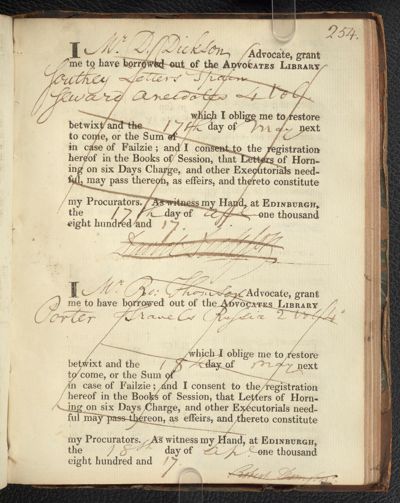 254.
I Mr. D. Dickson Advocate, grant
me to have borrowed out of the ADVOCATES LIBRARY
Southey Letters Spain
Seward Anecdotes 4 Vol
which I oblige me to restore
betwixt and the 17th day of May next
to come, or the Sum of
in case of Failzie; and I consent to the registration
hereof in the Books of Session, that Letters of Horn-
ing on six Days Charge, and other Executorials need-
ful, may pass thereon, as effeirs, and thereto constitute
my Procurators. As witness my Hand, at EDINBURGH,
the 17th day of Apl one thousand
eight hundred and 17.
I Mr. Ro: Thomson Advocate, grant
me to have borrowed out of the ADVOCATES LIBRARY
Porter Travels Russia 2 Vol 4°
which I oblige me to restore
betwixt and the 18th day of May next
to come, or the Sum of
in case of Failzie; and I consent to the registration
hereof in the Books of Session, that Letters of Horn-
ing on six Days Charge, and other Executorials need-
ful may pass thereon, as effeirs, and thereto constitute
my Procurators. As witness my Hand, at EDINBURGH,
the 18th day of Apl one thousand
eight hundred and 17
Robert Thomson